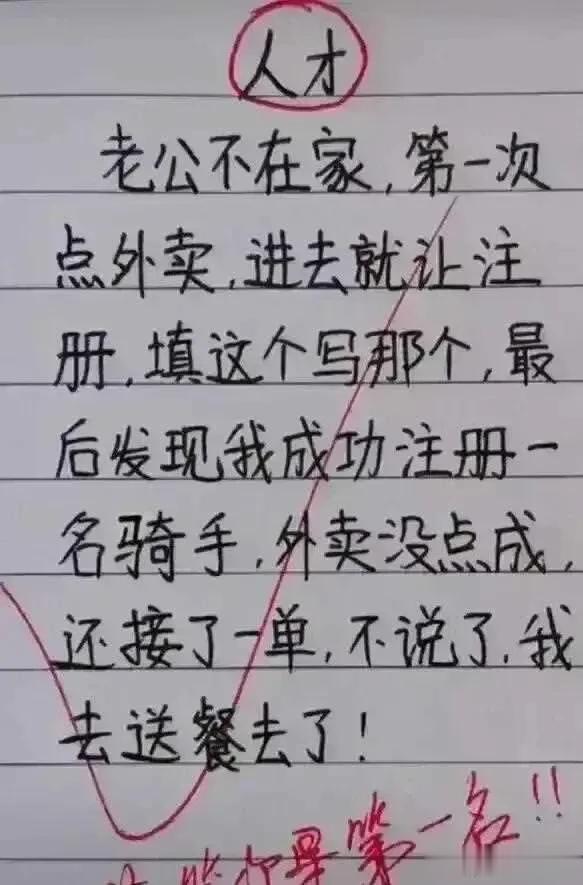 人才
老公不在家,第一次
点外卖,进去就让注
册,填这个写那个,最
后发现我成功注册一
名骑手,外卖没点成,
还接了一单,不说了,我
去送餐去了!
第一名!!